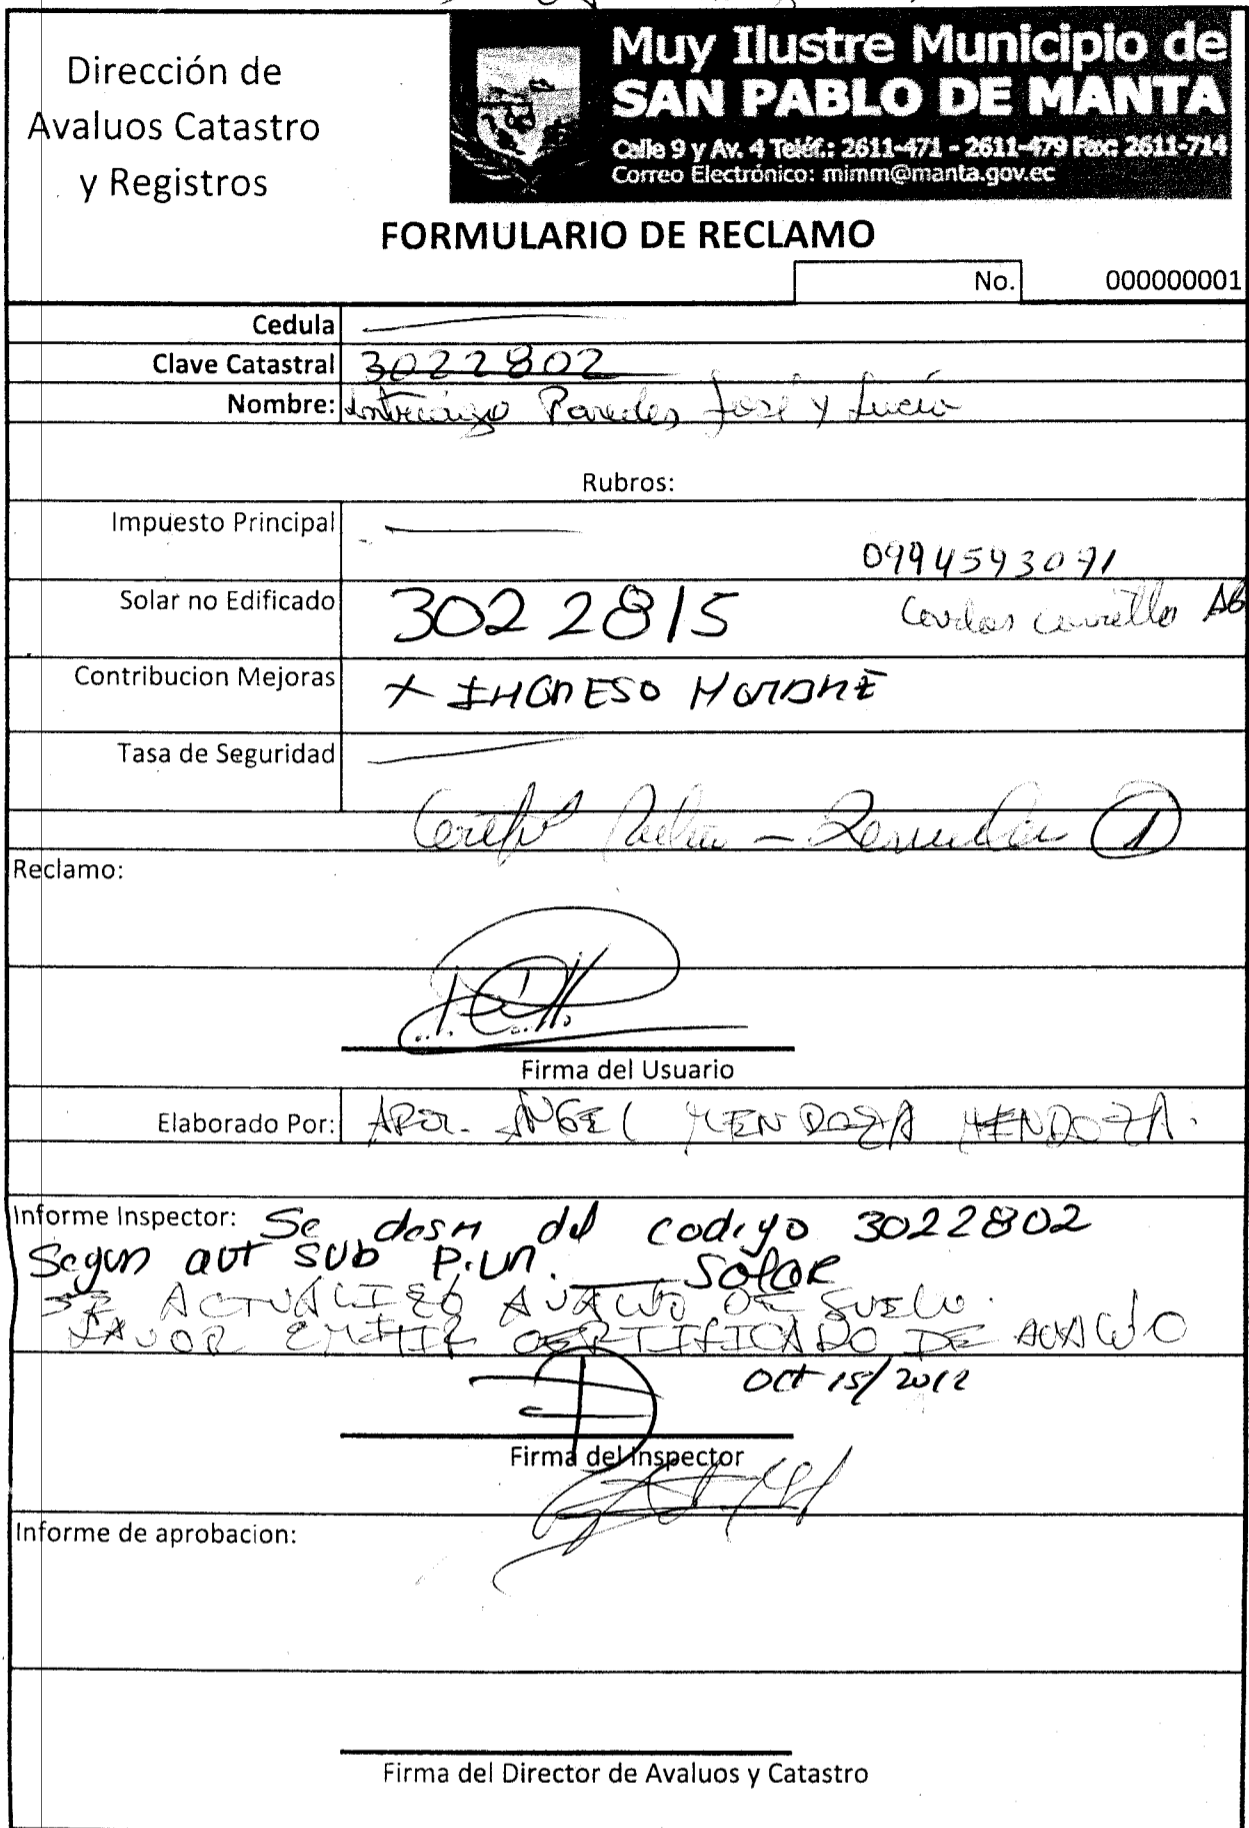 Dirección de
Avaluos Catastro
y Registros
Muy Ilustre Municipio de
SAN PABLO DE MANTA
Calle 9 y Av. 4 Teléf.: 2611-471 - 2611-479 Fax: 2611-714
Correo Electrónico: mimm@manta.gov.ec
FORMULARIO DE RECLAMO
No. 000000001
Cedula
Clave Catastral 3022802
Nombre: Paredes José y Lucia
Rubros:
Impuesto Principal
0994593071
Solar no Edificado 3022815
Contribucion Mejoras X
Tasa de Seguridad
1
Reclamo:
Firma del Usuario
Elaborado Por: ARQ. ANGEL MENDOZA MENDOZA.
Informe Inspector: Se desm del codigo 3022802
Segun aut SUB P.Un. SOLAR
SE ACTUALIZO AVALUO DE SUELO.
FAVOR EMITIR CERTIFICADO DE AVALUO
Oct 15/2012
Firma del Inspector
Informe de aprobacion:
Firma del Director de Avaluos y Catastro